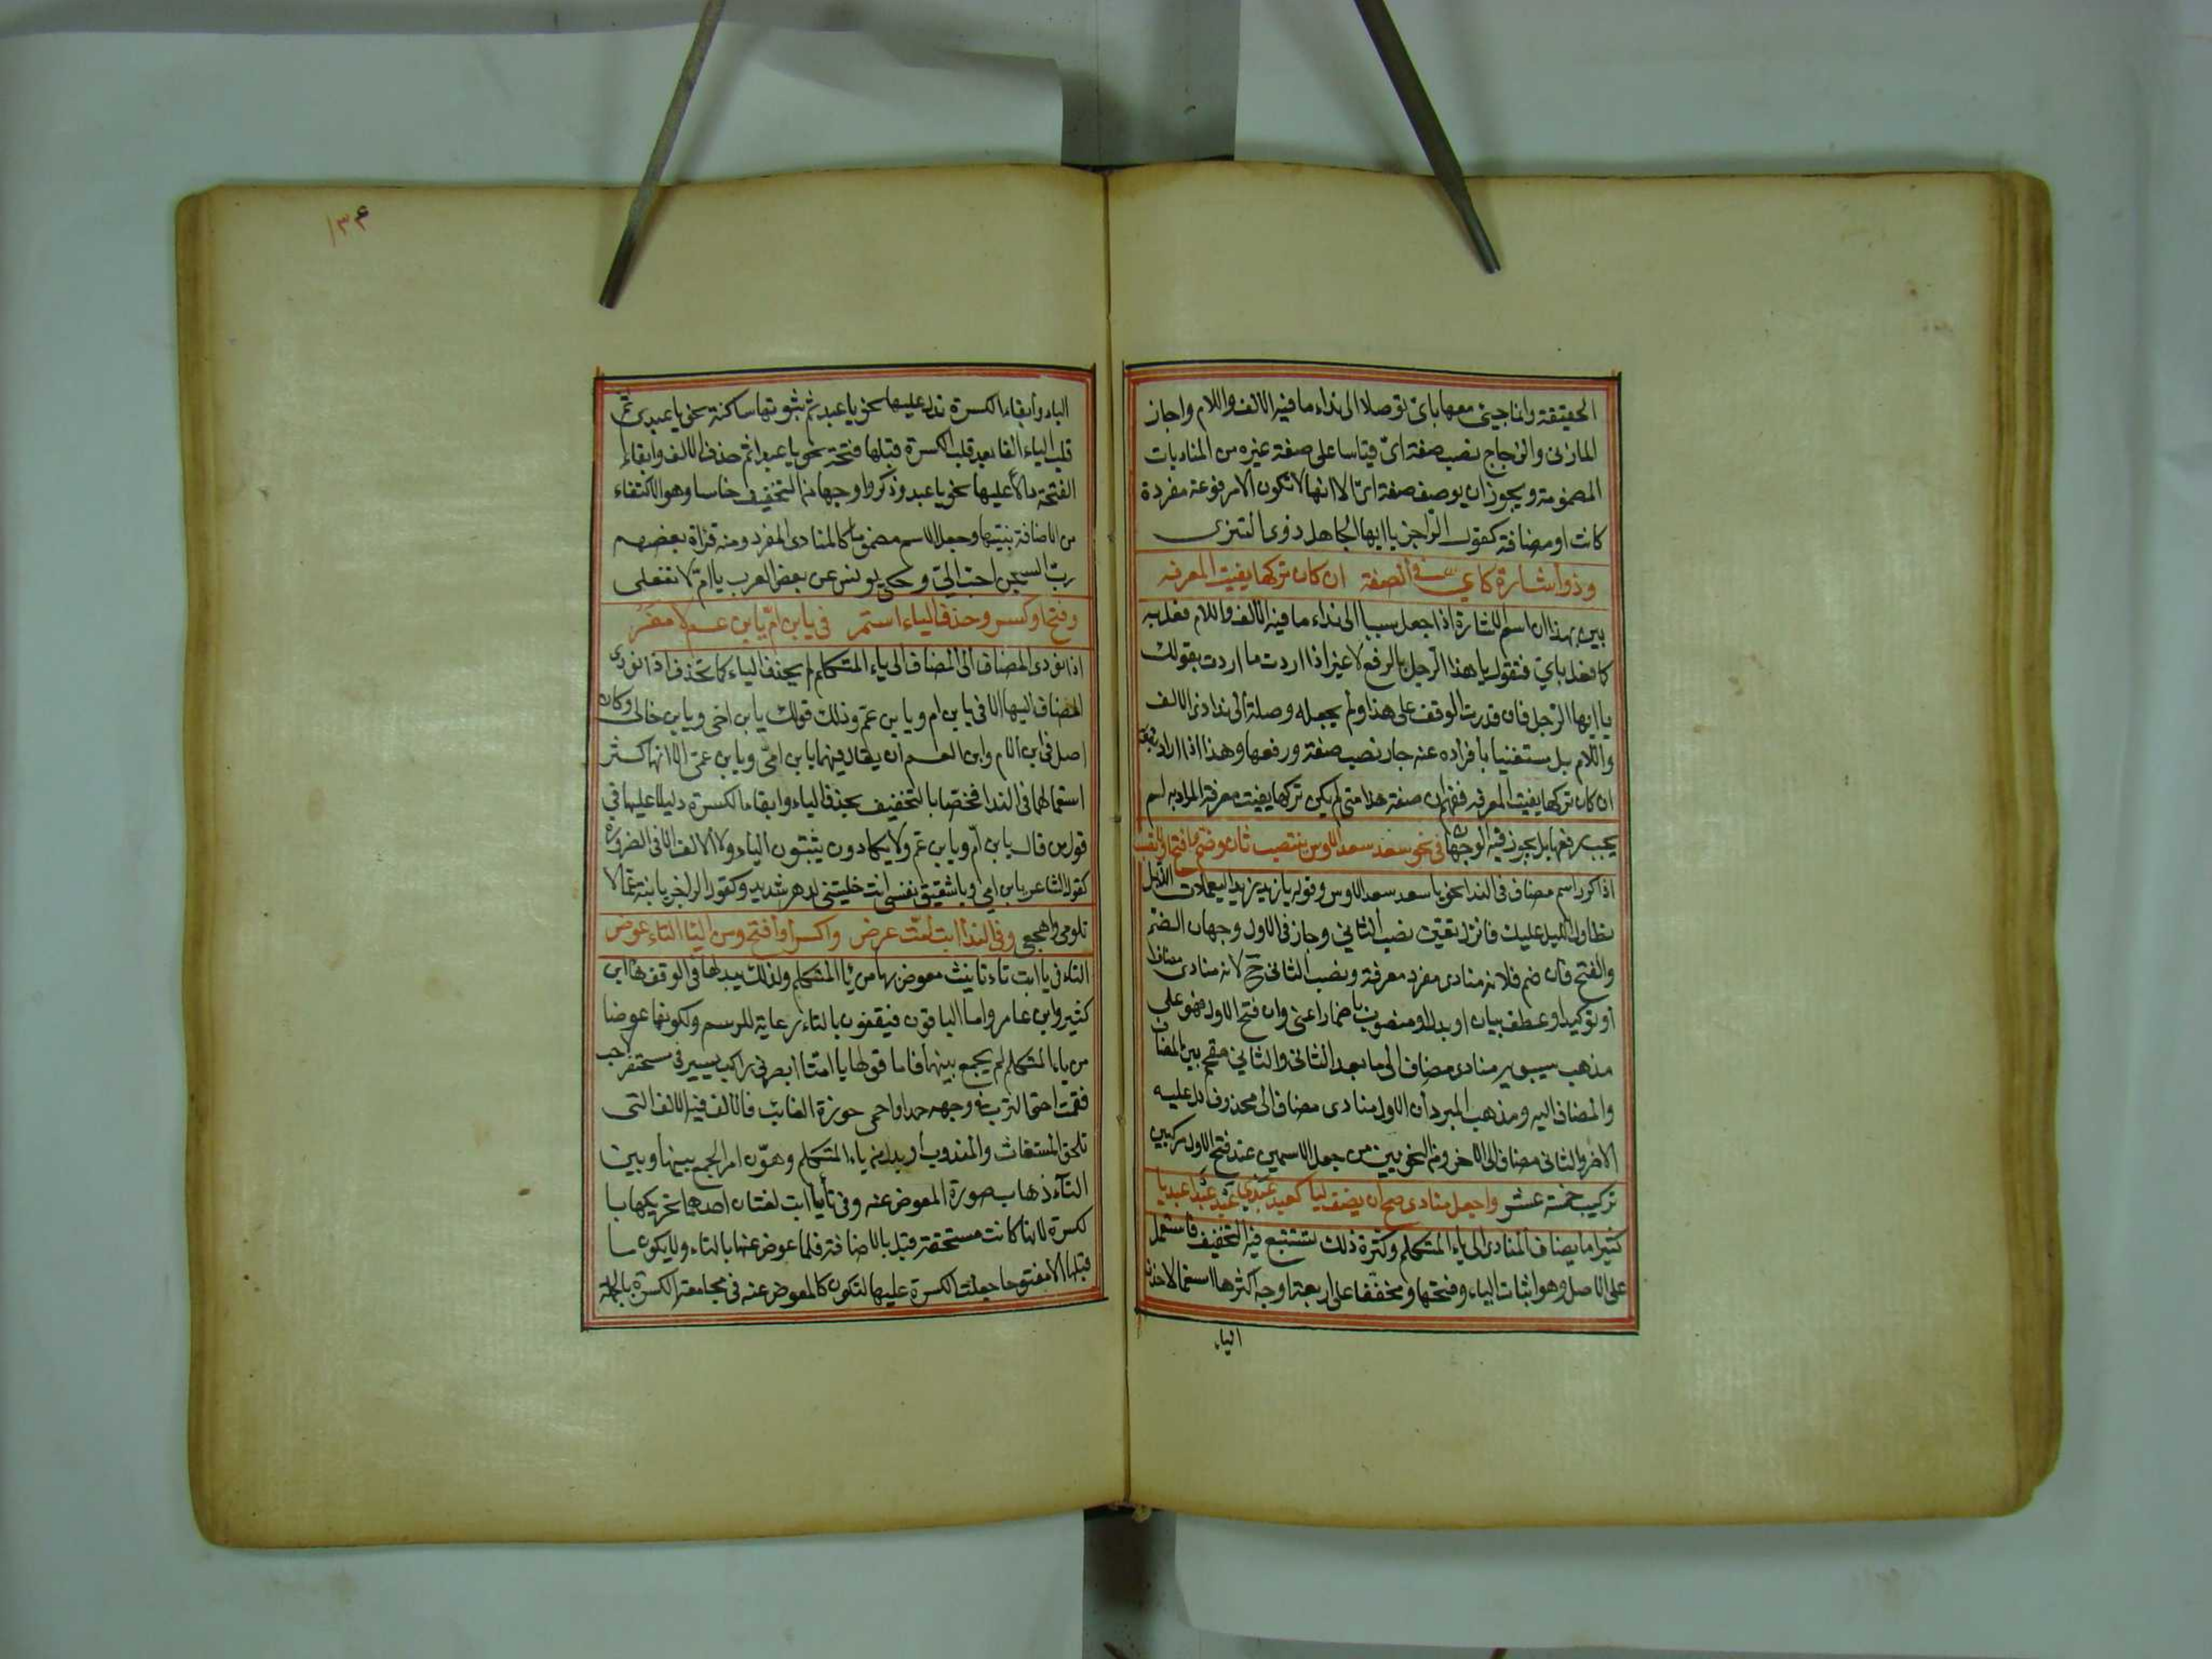 الحقيقة وانما جيئ معها باى توصلا الى نداء ما فيه الالف واللام واجاز
المازنى والزجاج نصب صفة اىّ قياسا على صفة غيره من المناديات
المضمومة ويجوز ان يوصف صفة اىّ الا انها لا تكون الا مرفوعة مفردة
كانت او مضافة كقول الرّاجز يا ايها الجاهل ذوى التنزى
وذو اشارة كاي فى الصفة ان كان تركها يفيت المعرفه
بين بهذا ان اسم الاشارة اذا جعل سببا الى نداء ما فيه الالف واللام فعل به
كما فعل باىّ فتقول يا هذا الرّجل بالرفع لا غير اذا اردت ما اردت بقولك
يا ايها الرّجل فان قدرت الوقف على هذا ولم يجعله وصلة الى نداء ذى الالف
واللام بل مستغنيا بافراده عنه جاز نصب صفته ورفعها وهذا اذا اراد بقوله
ان كان تركها يفيت المعرفه ففهم ان صفة هذا متى لم يكن تركها يفيت معرفة المراد به لم
يجب رفعها بل يجوز فيه الوجهان فى نحو سعد سعد الاوس ينتصب ثان وضم وافتح اولا تصب
اذا كرر اسم مضاف فى الندا نحو يا سعد سعد الاوس وقوله يا زيد زيد اليعملات الذبل
تطاول الليل عليك فانزل تعيّن نصب الثاني وجاز فى الاول وجهان الضمّ
والفتح فان ضم فلانه منادى مفرد معرفة ونصب الثانى ح لانه منادى مضاف
او توكيد او عطف بيان او بدل او منصوب باضمار اعنى وان فتح الاول فهو على
مذهب سيبويه منادى مضاف الى ما بعد الثانى والثاني مقحم بين المضاف
والمضاف اليه ومذهب المبرد ان الاول منادى مضاف الى محذوف دل عليه
الاخر والثانى مضاف الى الاخر ومن النحويين من جعل الاسمين عند فتح الاول مركبين
تركيب خمسة عشر واجعل منادى صح ان يضف ليا كعبد عبدي عبد عبدا عبديا
كثيرا ما يضاف المنادى الى ياء المتكلم وكثرة ذلك تستتبع فيه التخفيف فاستعمل
على الاصل وهو اثبات الياء وفتحها ومخففا على اربعة اوجه اكثرها استعمالا حذف
الياء
١٣٤
الياء وابقاء الكسرة تدل عليها نحو يا عبد ثم ثبوتها ساكنة نحو يا عبدى ثم
قلب الياء الفا بعد قلب الكسرة قبلها فتحة نحو يا عبدا ثم حذف الالف وابقاء
الفتحة دالا عليها نحو يا عبد وذكروا وجها من التخفيف خامسا وهو الاكتفاء
من الاضافة بنيتها وجعل الاسم مضموما كالمنادى المفرد ومنه قراة بعضهم
ربّ السجن احبّ الىّ وحكى يونس عن بعض العرب يا امّ لا تفعلى
وفتح او كسر وحذف الياء استمر فى يا بن امّ يا بن عم لا مفر
اذا نودى المضاف الى المضاف الى ياء المتكلم لم يحذف الياء كما تحذف اذا نودى
المضاف اليها الا فى يا بن ام ويا بن عمّ وذلك قولك يا بن اخى ويا بن خالى وكان
اصل فى ابن الام وابن العم ان يقال فيهما يا بن امّى ويا بن عمّى الا انها كثر
استعمالهما فى الندا فخصّا بالتخفيف بحذف الياء وابقاء الكسرة دليلا عليها فى
قول من قال يا بن امّ ويا بن عمّ ولا يكادون يثبتون الياء ولا الالف الا فى الضرورة
كقول الشاعر يا بن امى ويا شقيق نفسى انت خليتنى لدهر شديد وكقول الراجز يا بنة عمّا لا
تلومى واهجعى وفى الندا ابت امّت عرض واكسر او افتح ومن اليا التاء عوض
التاء فى يا ابت تاء تانيث معوض بها من يا المتكلم ولذلك يبدلها فى الوقف هاء ابن
كثير وابن عامر واما الباقون فيقفون بالتاء رعاية للرسم ولكونها عوضا
من ياء المتكلم لم يجمع بينهما فاما قولها يا امتا ابصرنى راكب يسير فى مسحنفر لاحب
فقمت احثى الترب فى وجهه عمدا واحمى حوزة الغائب فالالف فيه الالف التى
تلحق المستغاث والمندوب او بدل من ياء المتكلم وهوّن امر الجمع بينها وبين
التاء ذهاب صورة المعوض عنه وفى تا يا ابت لغتان احدهما تحريكها با
لكسرة لانها كانت مستحقة قبل ياء الاضافة فلما عوض عنها بالتاء ولا يكون ما
قبلها الا مفتوحا جعلت الكسرة عليها لتكون كالمعوض عنه فى مجامعة الكسرة